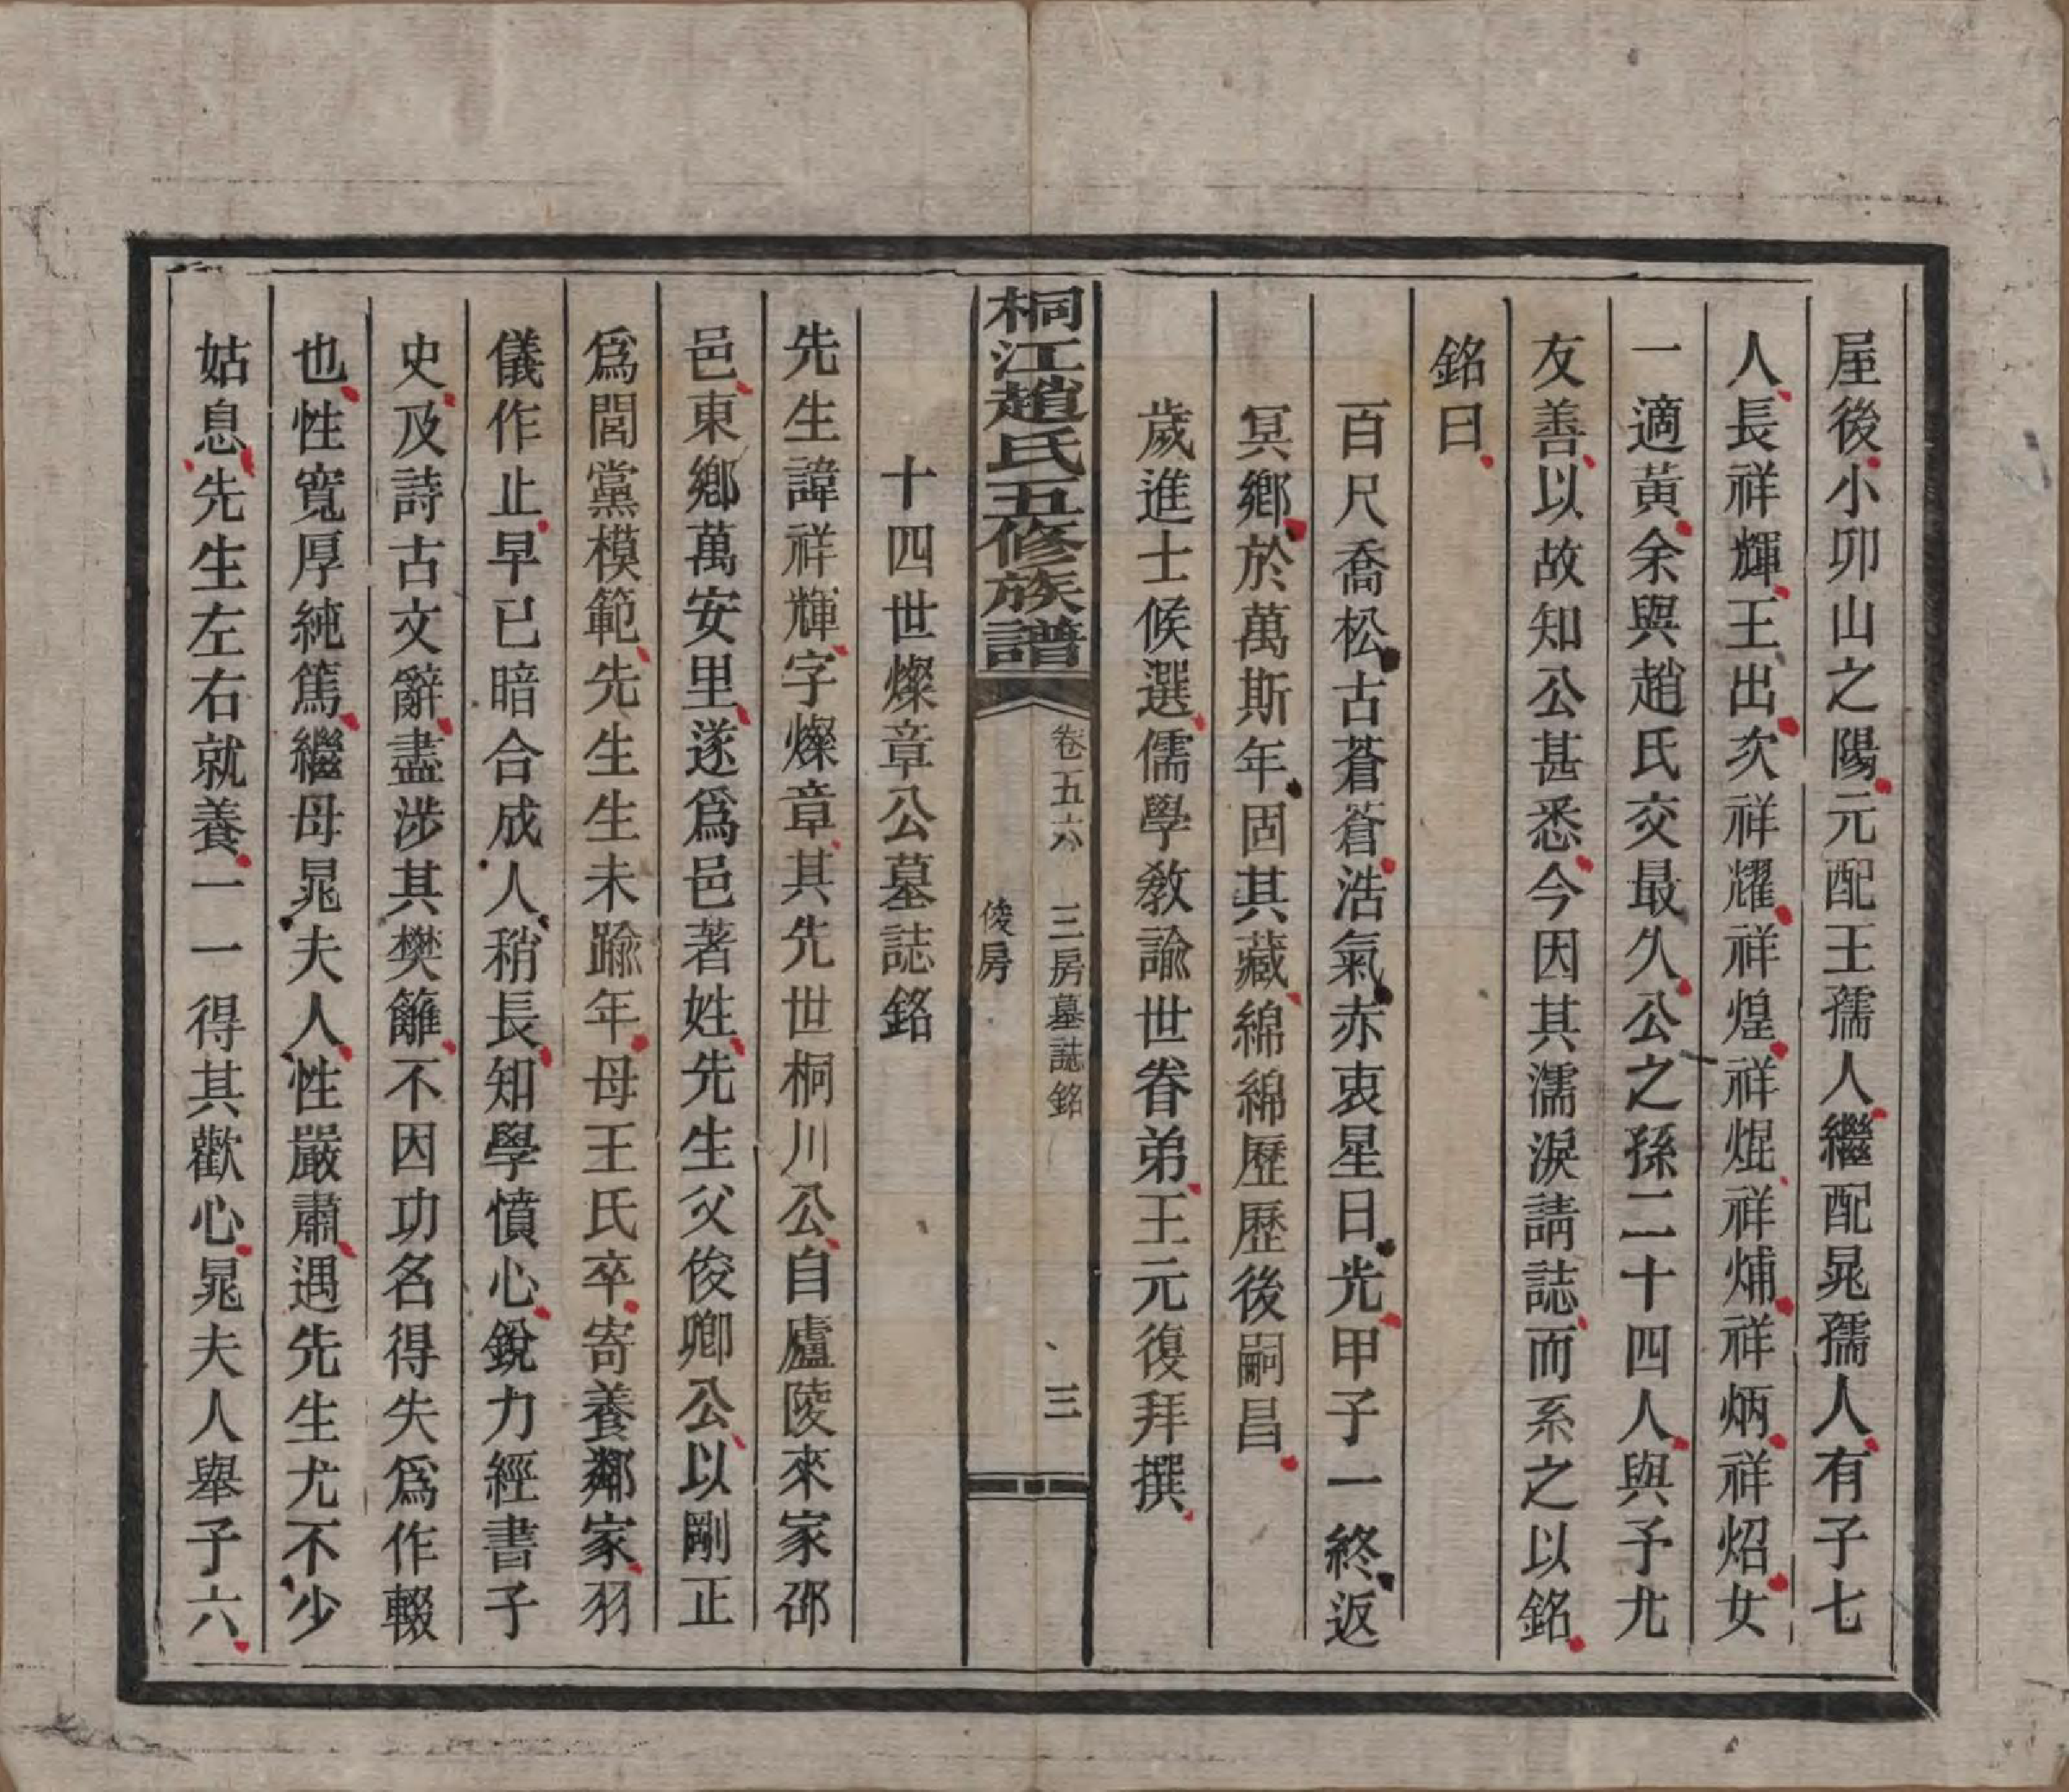 屋後小卯山之陽元配王孺人繼配晁孺人有子七
人長祥輝王出次祥耀祥煌祥焜祥㷛祥炳祥炤女
一適黃余與趙氏交最久公之孫二十四人與予尤
友善以故知公甚悉今因其濡淚請誌而系之以銘
銘曰
百尺喬松古蒼蒼浩氣赤衷星日光甲子一終返
冥鄉於萬斯年固其藏綿綿歷歷後嗣昌
歲進士候選儒學教諭世眷弟王元復拜撰
桐江趙氏五修族譜
卷五六 三房墓誌銘 三
俊房
十四世燦章公墓誌銘
先生諱祥輝字燦章其先世桐川公自廬陵來家邵
邑東鄉萬安里遂爲邑著姓先生父俊卿公以剛正
爲閭黨模範先生生未踰年母王氏卒寄養鄰家羽
儀作止早已暗合成人稍長知學憤心銳力經書子
史及詩古文辭盡涉其樊籬不因功名得失爲作輟
也性寬厚純篤繼母晁夫人性嚴肅遇先生尤不少
姑息先生左右就養一一得其歡心晁夫人舉子六